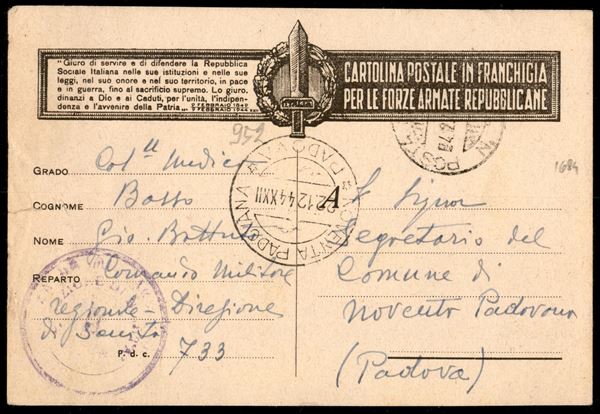 "Giuro di servire e di difendere la Repubblica
Sociale Italiana nelle sue istituzioni e nelle sue
leggi, nel suo onore e nel suo territorio, in pace
e in guerra, fino al sacrificio supremo. Lo giuro,
dinanzi a Dio e ai Caduti, per l'unità, l'indipen-
denza e l'avvenire della Patria„
CARTOLINA POSTALE IN FRANCHIGIA
PER LE FORZE ARMATE REPUBBLICANE
952
1684
GRADO Col.llo Medico
COGNOME Basso
NOME Gio. Battista
REPARTO Comando Militare
regionale - Direzione
di Sanità
P. d. c. 733
NOVENTA PADOVANA
* PADOVA *
22.12.44 XXIII
A
POSTA
Signor
Segretario del
Comune di
Noventa Padovana
(Padova)